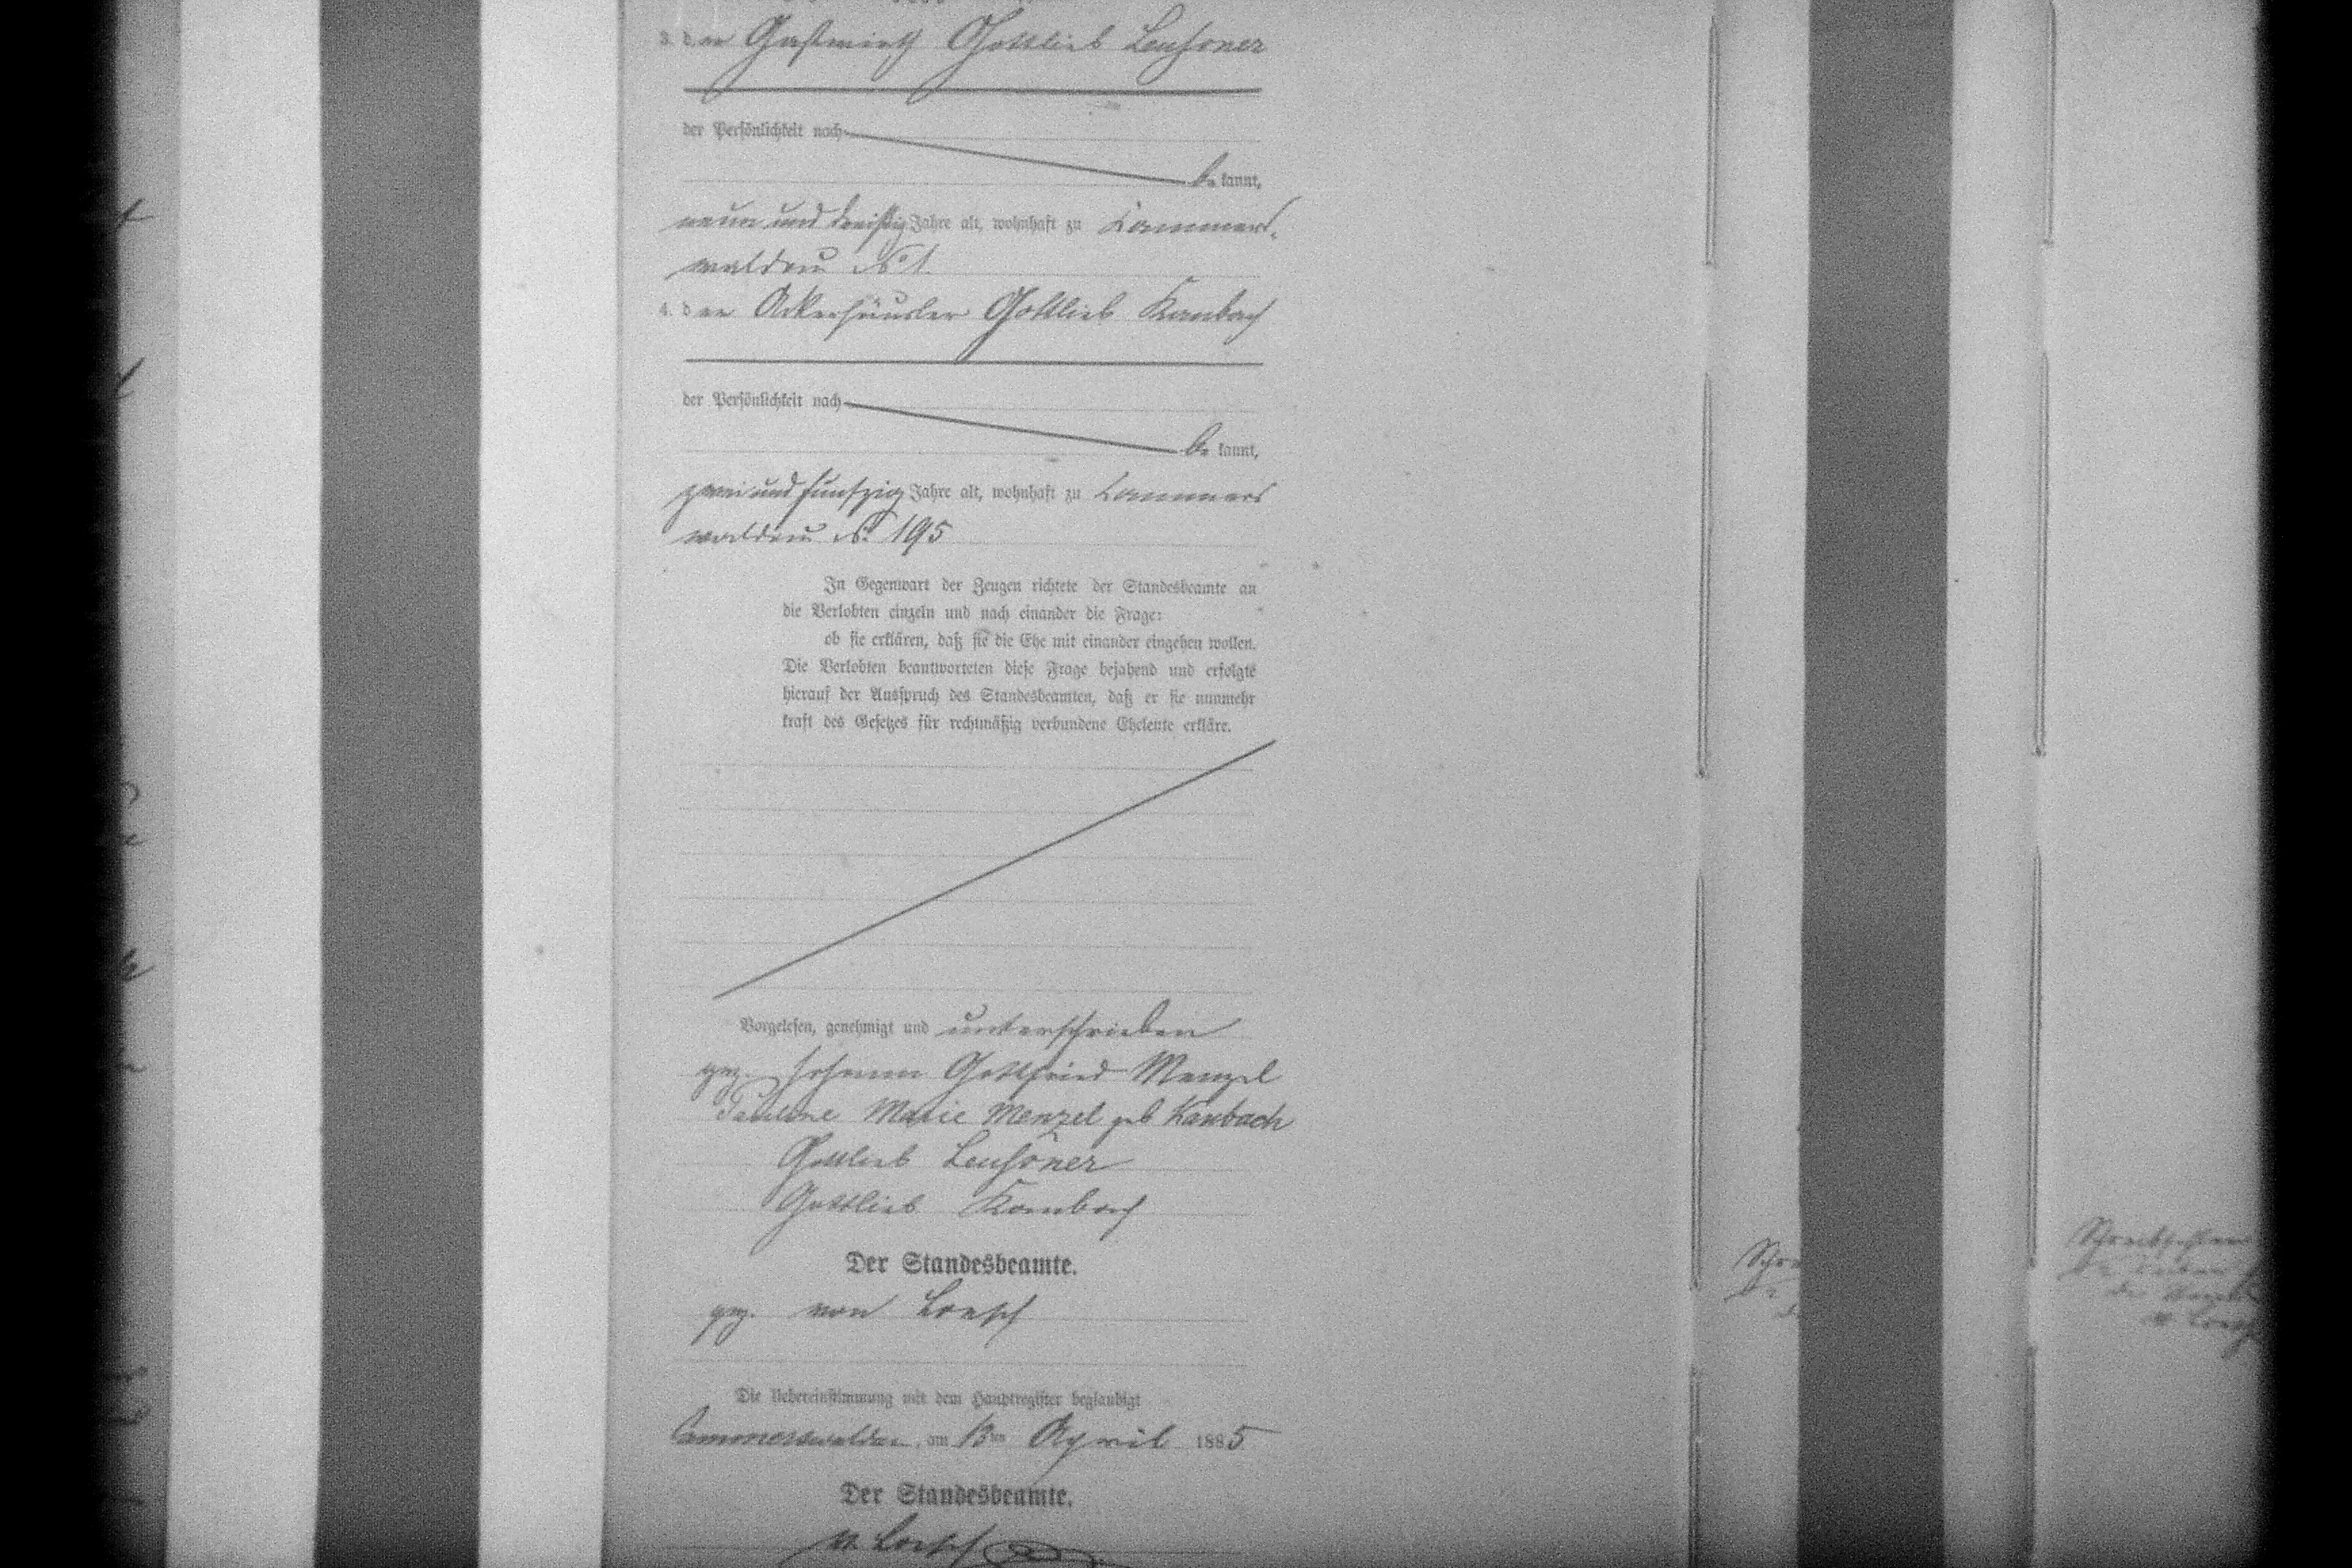 3. der Gastwirth Gottlieb Leusöner
der Persönlichkeit nach
be kannt,
neun und dreißig Jahre alt, wohnhaft zu Cammers-
waldau No 1
4. der Ackerhäusler Gottlieb Kambach
der Persönlichkeit nach
be kannt,
zwei und funfzig Jahre alt, wohnhaft zu Cammers
waldau No 195
In Gegenwart der Zeugen richtete der Standesbeamte an
die Verlobten einzeln und nach einander die Frage:
ob sie erklären, daß sie die Ehe mit einander eingehen wollen.
Die Verlobten beantworteten diese Frage bejahend und erfolgte
hierauf der Ausspruch des Standesbeamten, daß er sie nunmehr
kraft des Gesetzes für rechtmäßig verbundene Eheleute erkläre.
Vorgelesen, genehmigt und unterschrieben
gez. Johann Gottfried Menzel
Pauline Marie Menzel geb Kambach
Gottlieb Leusöner
Gottlieb Kambach
Der Standesbeamte.
gez. von Loesch
Die Uebereinstimmung mit dem Hauptregister beglaubigt
Cammerswaldau, am 13ten April 1885
Der Standesbeamte.
v. Loesch